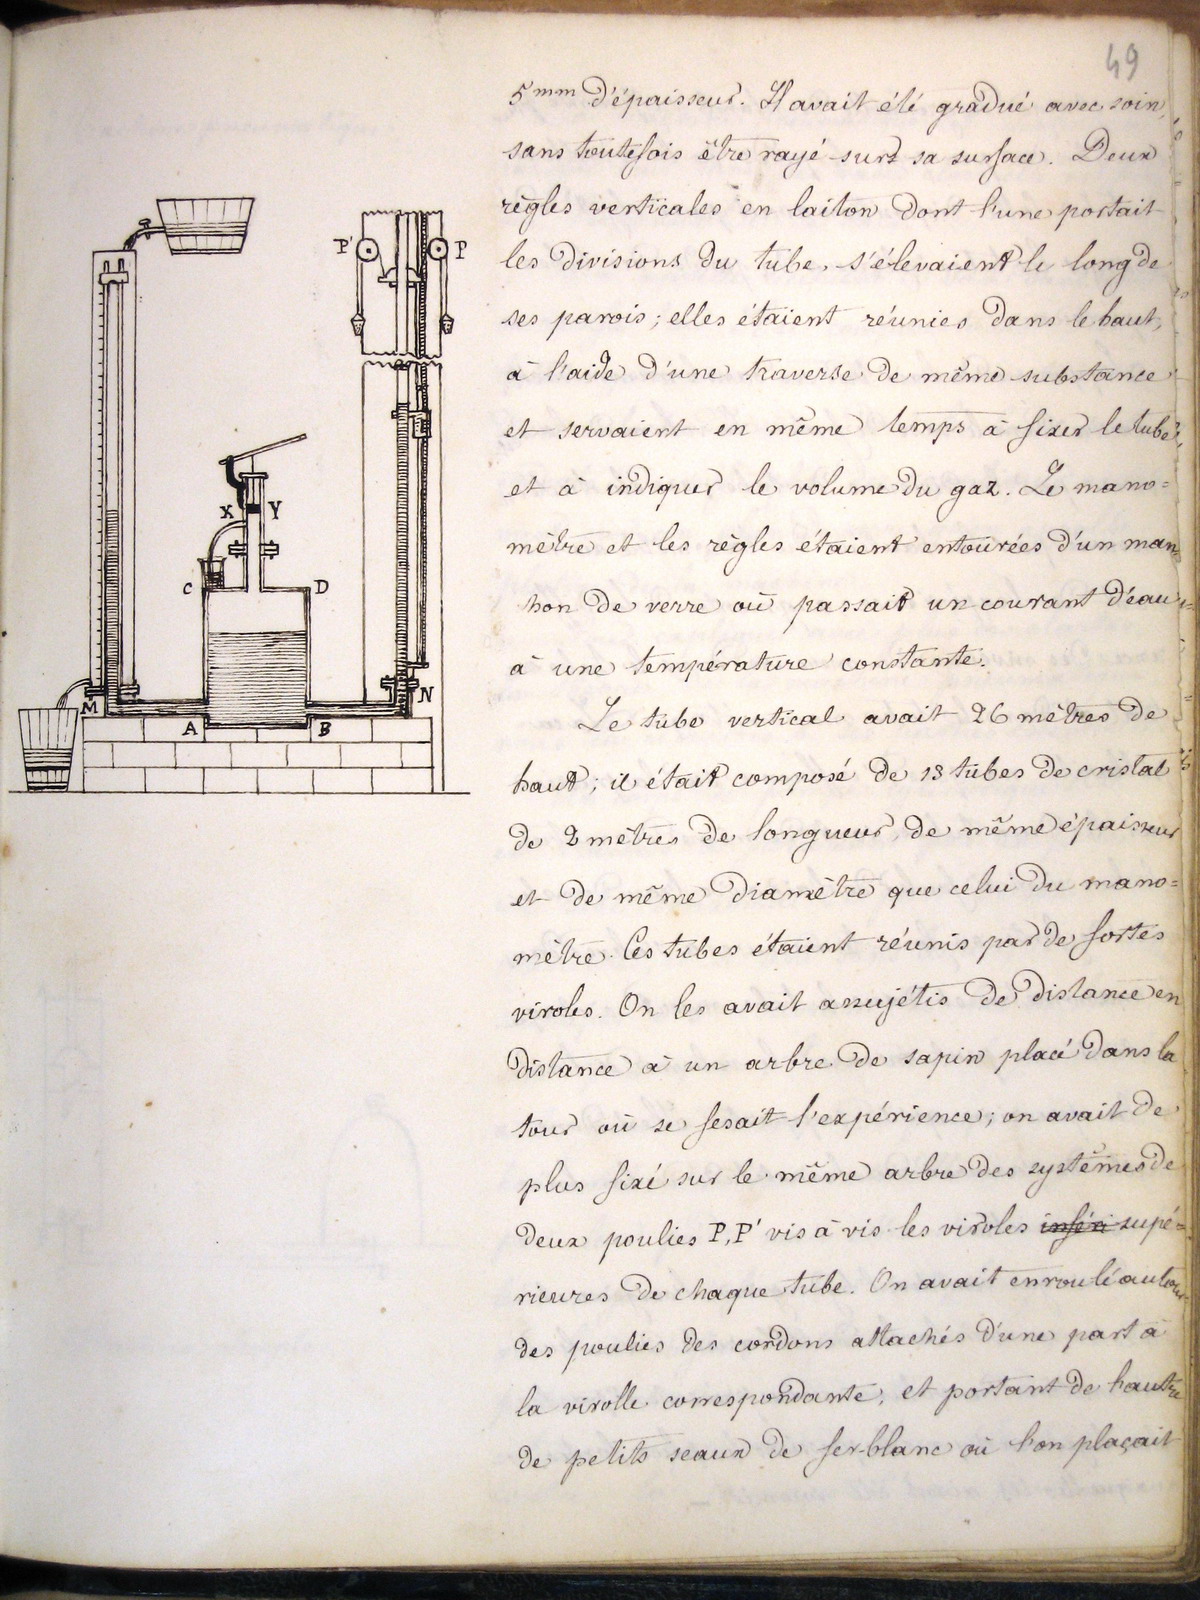 49
5mm d'épaisseur. Il avait été gradué avec soin,
sans toutefois être rayé sur sa surface. Deux
règles verticales en laiton dont l'une portait
les divisions du tube, s'élevaient le long de
ses parois; elles étaient réunies dans le haut,
à l'aide d'une traverse de même substance
et servaient en même temps à fixer le tube,
et à indiquer le volume du gaz. Le mano=
mètre et les règles étaient entourées d'un man
hon de verre où passait un courant d'eau
à une température constante.
Le tube vertical avait 26 mètres de
haut; il était composé de 13 tubes de cristal
de 2 mètres de longueur, de même épaisseur
et de même diamètre que celui du mano=
mètre. Ces tubes étaient réunis par de fortes
viroles. On les avait assujétis de distance en
distance à un arbre de sapin placé dans la
tour où se fesait l'expérience; on avait de
plus fixé sur le même arbre des systèmes de
deux poulies P, P' vis à vis les viroles inféri supé=
rieures de chaque tube. On avait enroulé autour
des poulies des cordons attachés d'une part à
la virolle correspondante, et portant de l'autre
de petits seaux de fer-blanc où l'on plaçait
P' P
X Y
C D
M N
A B